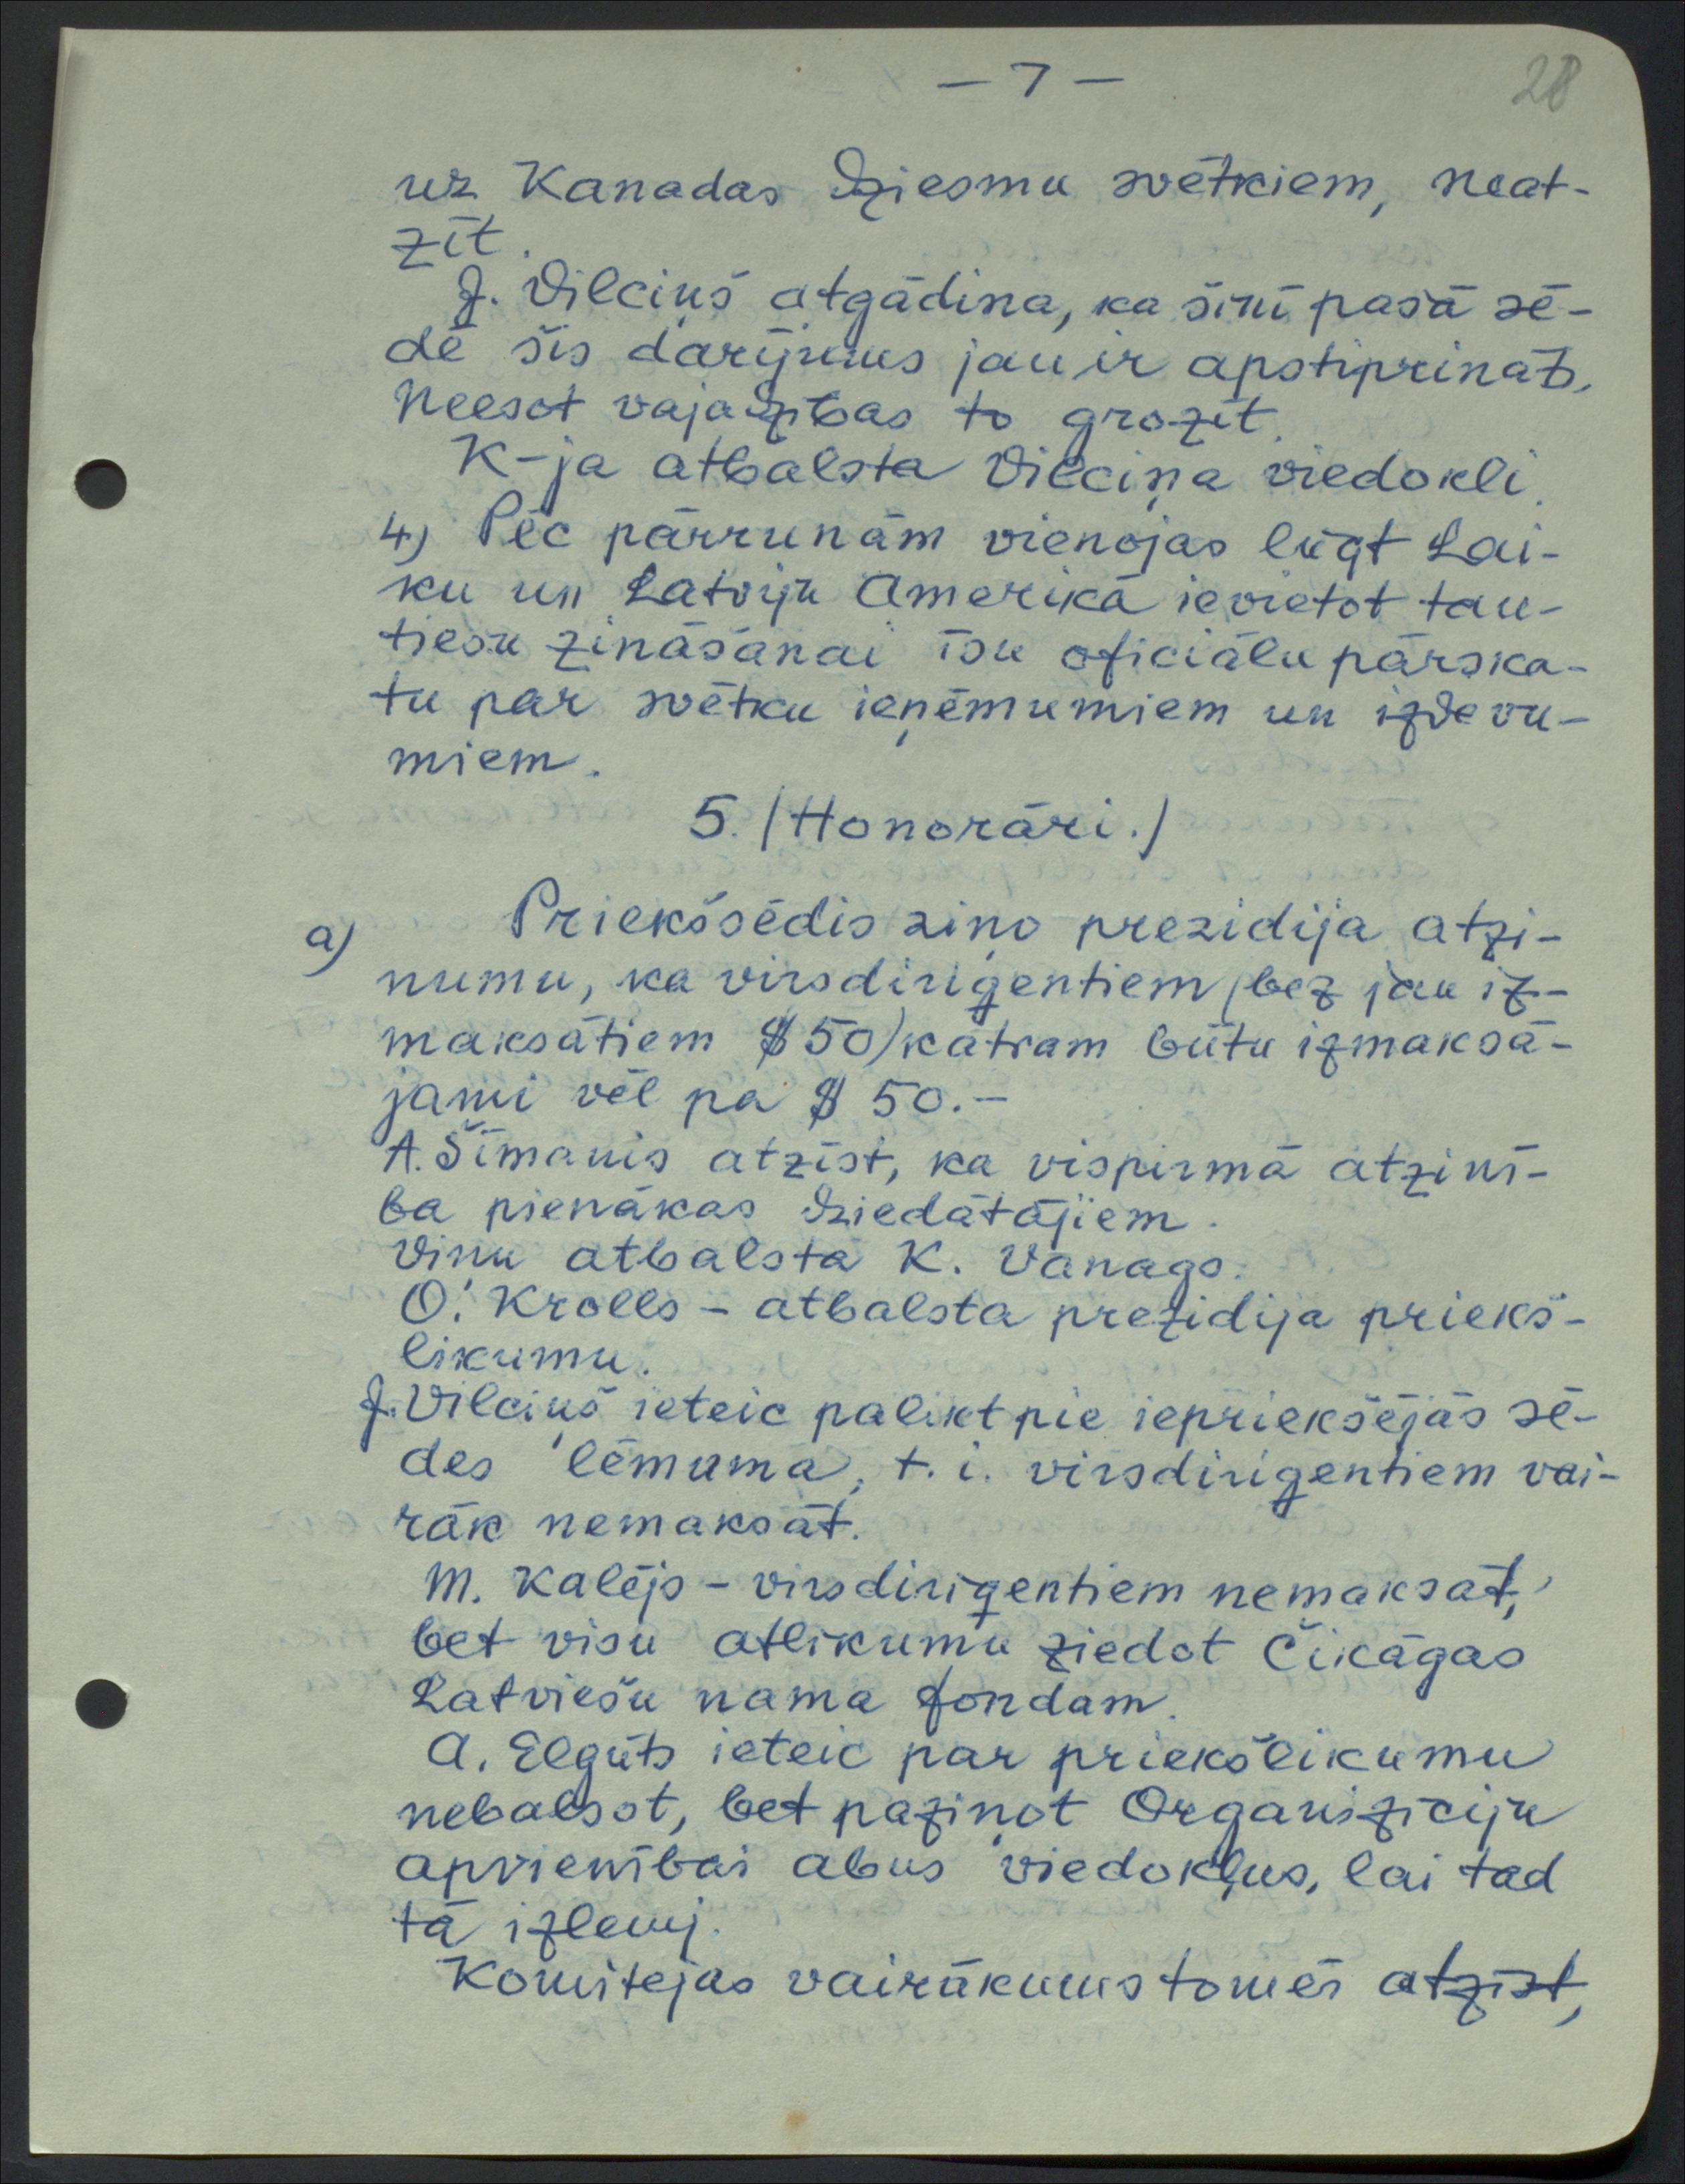 — 7 —
28
uz Kanadas Dziesmu svētkiem, neat-
zīt.
J. Vilciņš atgādina, ka šinī pašā sē-
dē šis darījums jau ir apstiprināts,
Neesot vajadzības to grozīt.
K-ja atbalsta Vilciņa viedokli.
4) Pēc pārrunām vienojas lūgt Lai-
ku un Latviju Amerikā ievietot tau-
tiešu zināšanai īsu oficiālu pārska-
tu par svētku ieņēmumiem un izdevu-
miem.
5. /Honorāri./
a) Priekšsēdis ziņo prezidija atzi-
numu, ka virsdiriģentiem (bez jau iz-
maksātiem $50) katram būtu izmaksā-
jami vēl pa $ 50.-
A. Šīmanis atzīst, ka vispirmā atzinī-
ba pienākas dziedātājiem.
Viņu atbalsta K. Vanags.
O. Krolls – atbalsta prezidija priekš-
likumu.
J. Vilciņš ieteic palikt pie iepriekšējās sē-
des lēmuma, t. i. virsdiriģentiem vai-
rāk nemaksāt.
M. Kalējs – virsdiriģentiem nemaksāt,
bet visu atlikumu ziedot Čikāgas
Latviešu nama fondam.
A. Elguts ieteic par priekšlikumu
nebalsot, bet paziņot Organizāciju
apvienībai abus viedokļus, lai tad
tā izlemj.
Komitejas vairākums tomēr atzīst,